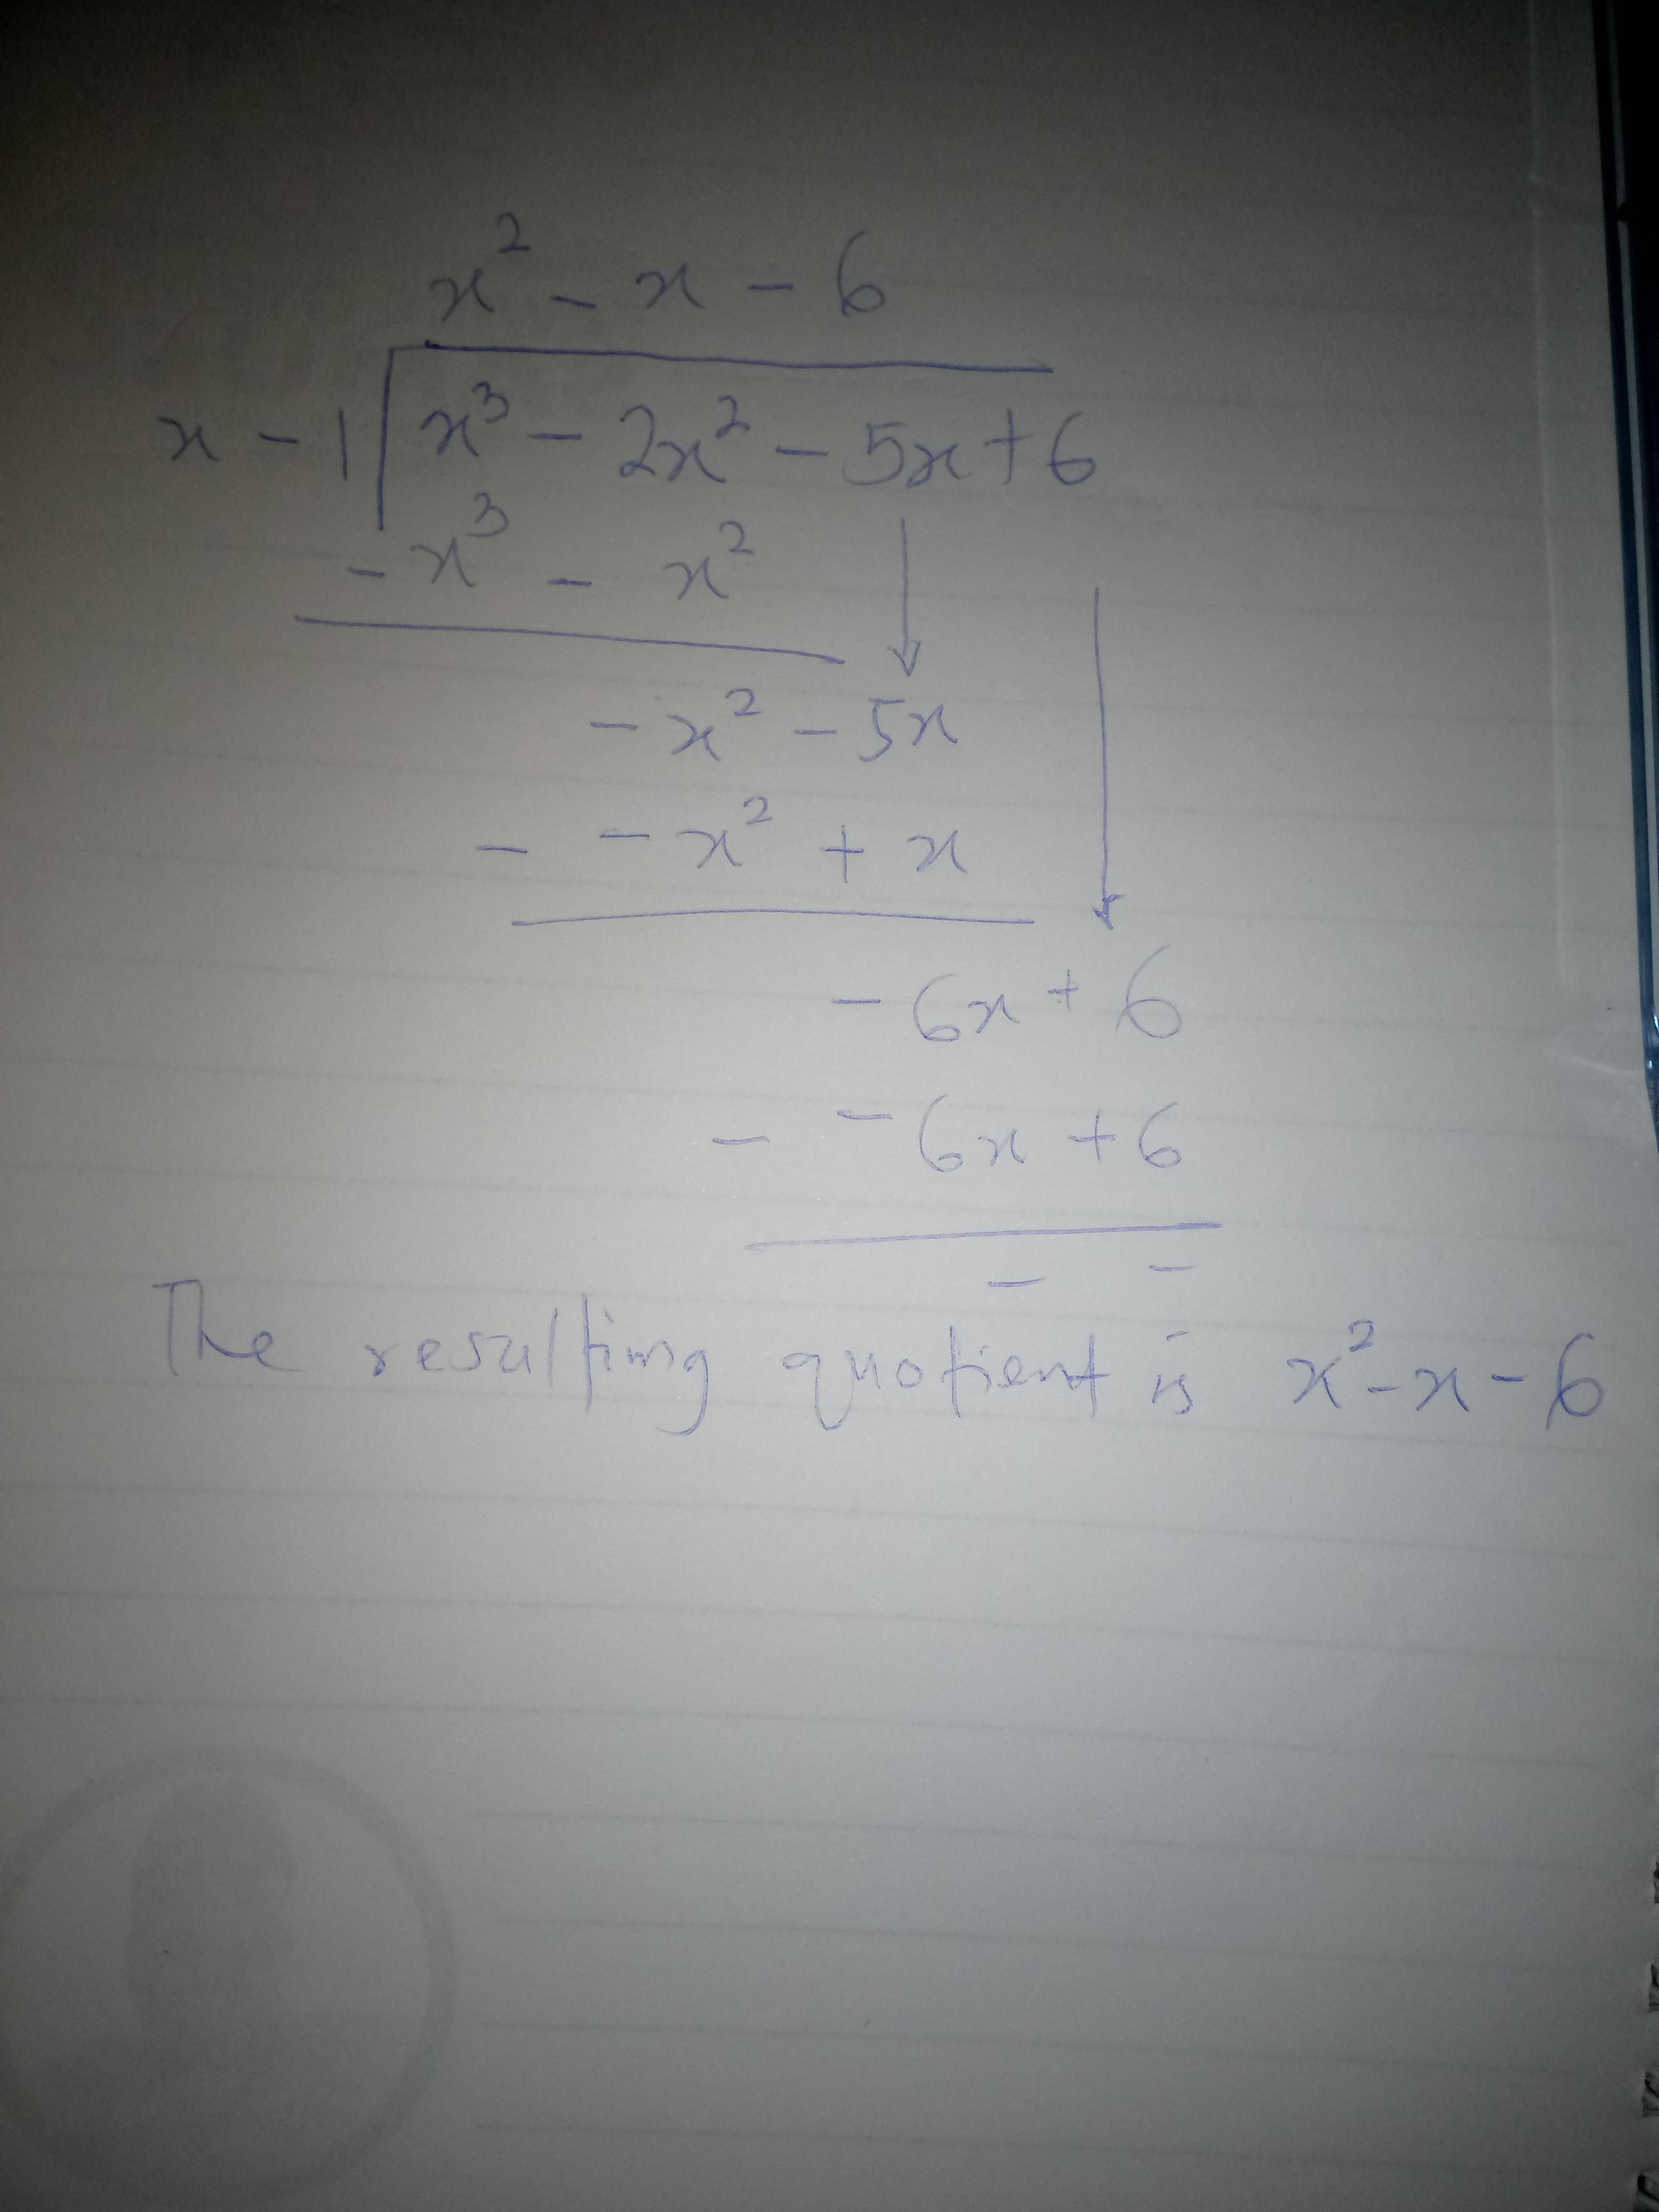 x² - x - 6
x - 1 x³ - 2x² - 5x + 6
- x³ - x²
- x² - 5x
- - x² + x
- 6x + 6
- - 6x + 6
- -
The resulting quotient is x² - x - 6